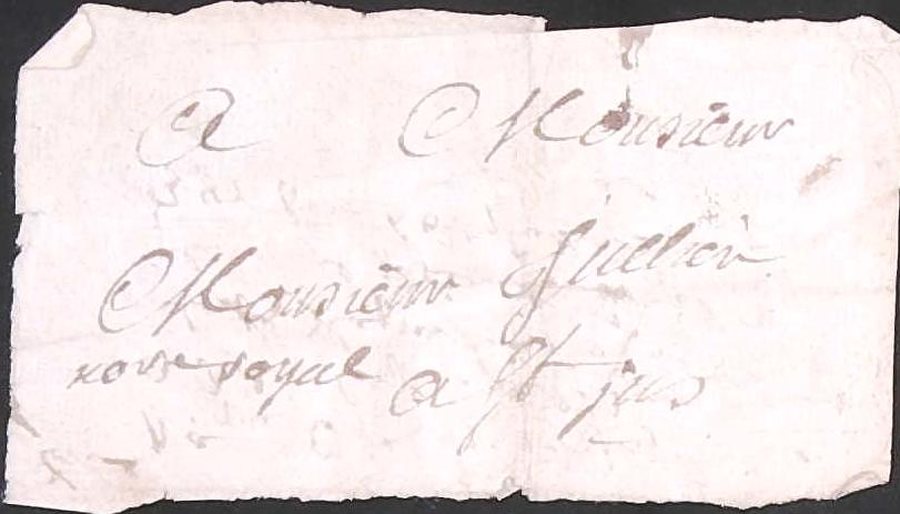 A Monsieur
Monsieur Jullien
notre royal a St jus